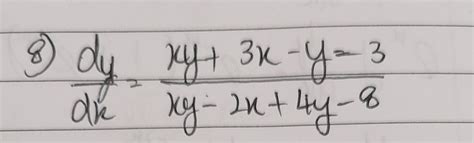 8) dy/dx = xy + 3x - y = 3 / xy - 2x + 4y - 8